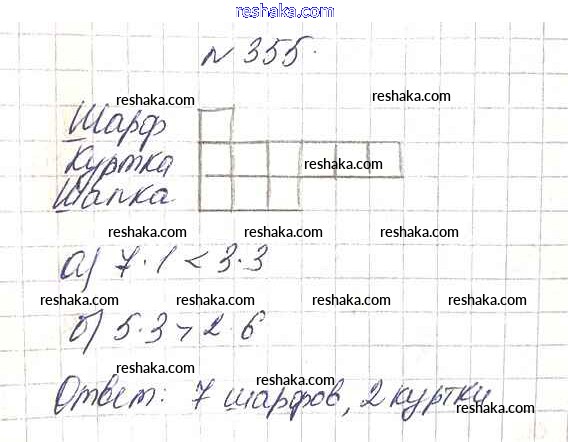 reshaka.com
№ 355.
reshaka.com
reshaka.com
Шарф
Куртка
reshaka.com
Шапка
reshaka.com
reshaka.com
reshaka.com
а) 7·1 < 3·3
reshaka.com
reshaka.com
reshaka.com
б) 5·3 > 2·6
reshaka.com
reshaka.com
Ответ: 7 шарфов, 2 куртки
reshaka.com